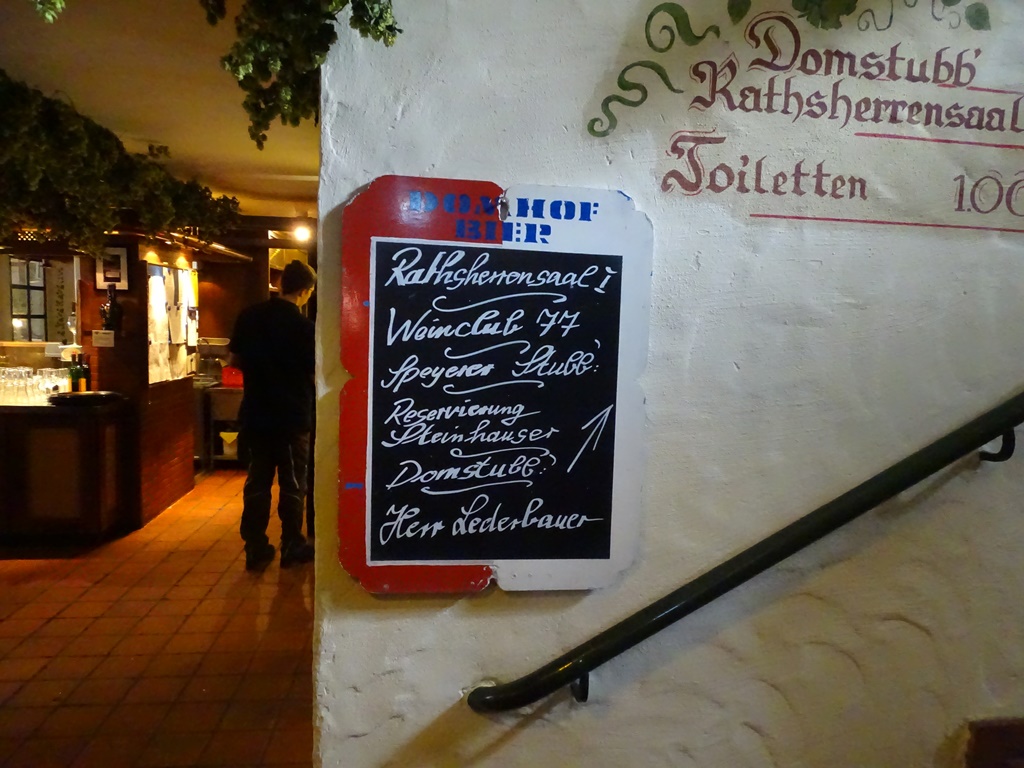 Domstubb'
Rathsherrensaal
Toiletten
DOMHOF
BIER
Rathsherrensaal I
Weinclub 77
Speyerer Stubb:
Reservierung
Steinhauser
Domstubb:
Herr Lederbauer